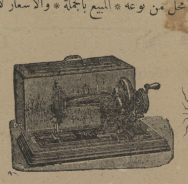 محل من نوعه * المبيع بالجملة * والاسعار